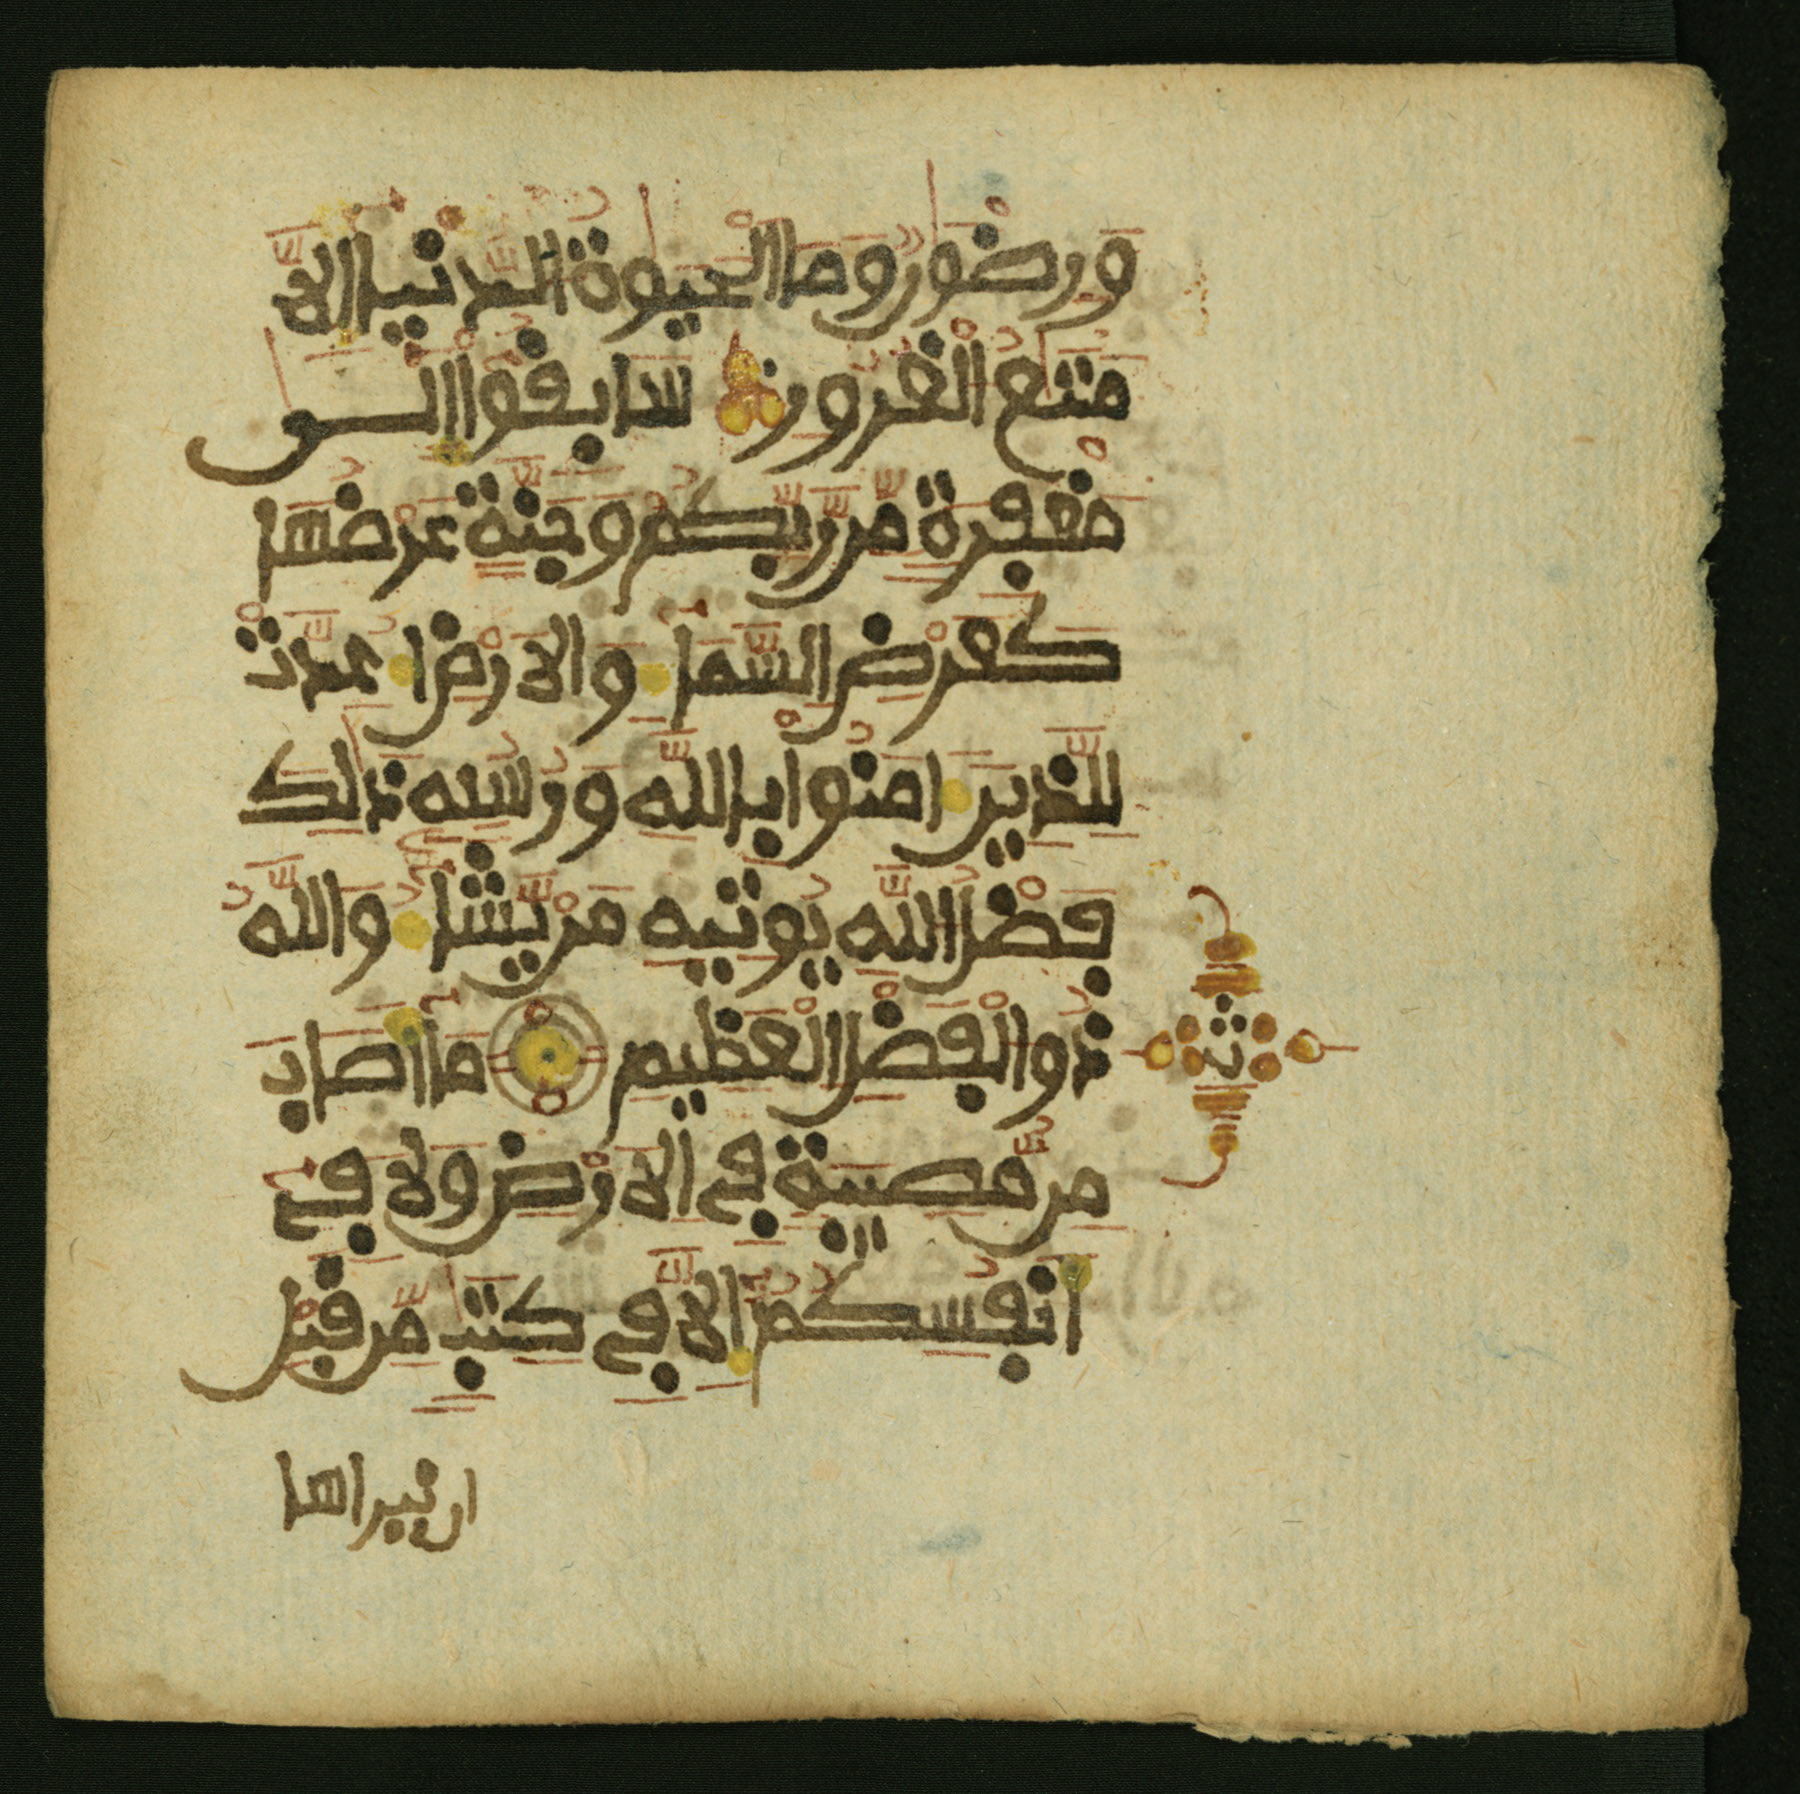 ورضون وما الحيوة الدنيا الا
متع الغرور سابقوا الى
مغفرة من ربكم وجنة عرضها
كعرض السما والارض اعدت
للذين امنوا بالله ورسله ذلك
فضل الله يوتيه من يشا والله
ذو الفضل العظيم ما اصاب
من مصيبة في الارض ولا في
انفسكم الا في كتب من قبل
ان نبراها